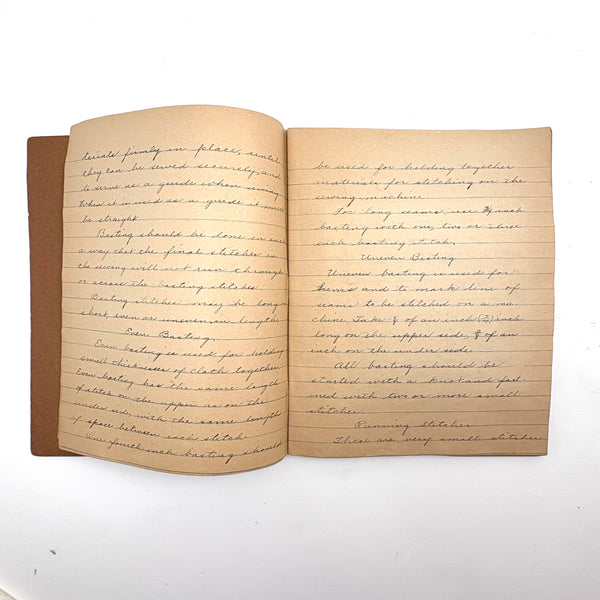 terials firmly in place, until
they can be sewed securely, and
to serve as a guide when sewing
When it is used as a guide it must
be straight
Basting should be done in such
a way that the final stitches in
the sewing will not run through
or across the basting stitches.
Basting stitches may be long or
short, even or uneven in length.
Even Basting.
Even basting is used for holding
small thicknesses of cloth together.
Even basting has the same length
of stitch on the upper as on the
under side, with the same length
of space between each stitch
One fourth inch basting should
be used for holding together
materials for stitching on the
sewing machine
For long seams use inch
basting with one, two or three
inch basting stitch.
Uneven Basting
Uneven basting is used for
hems and to mark line of
seams to be stitched on a ma-
chine. Take of an inch inch
long on the upper side, of an
inch on the under side.
All basting should be
started with a knot and fast-
ened with two or more small
stitches.
Running Stitches
These are very small stitches